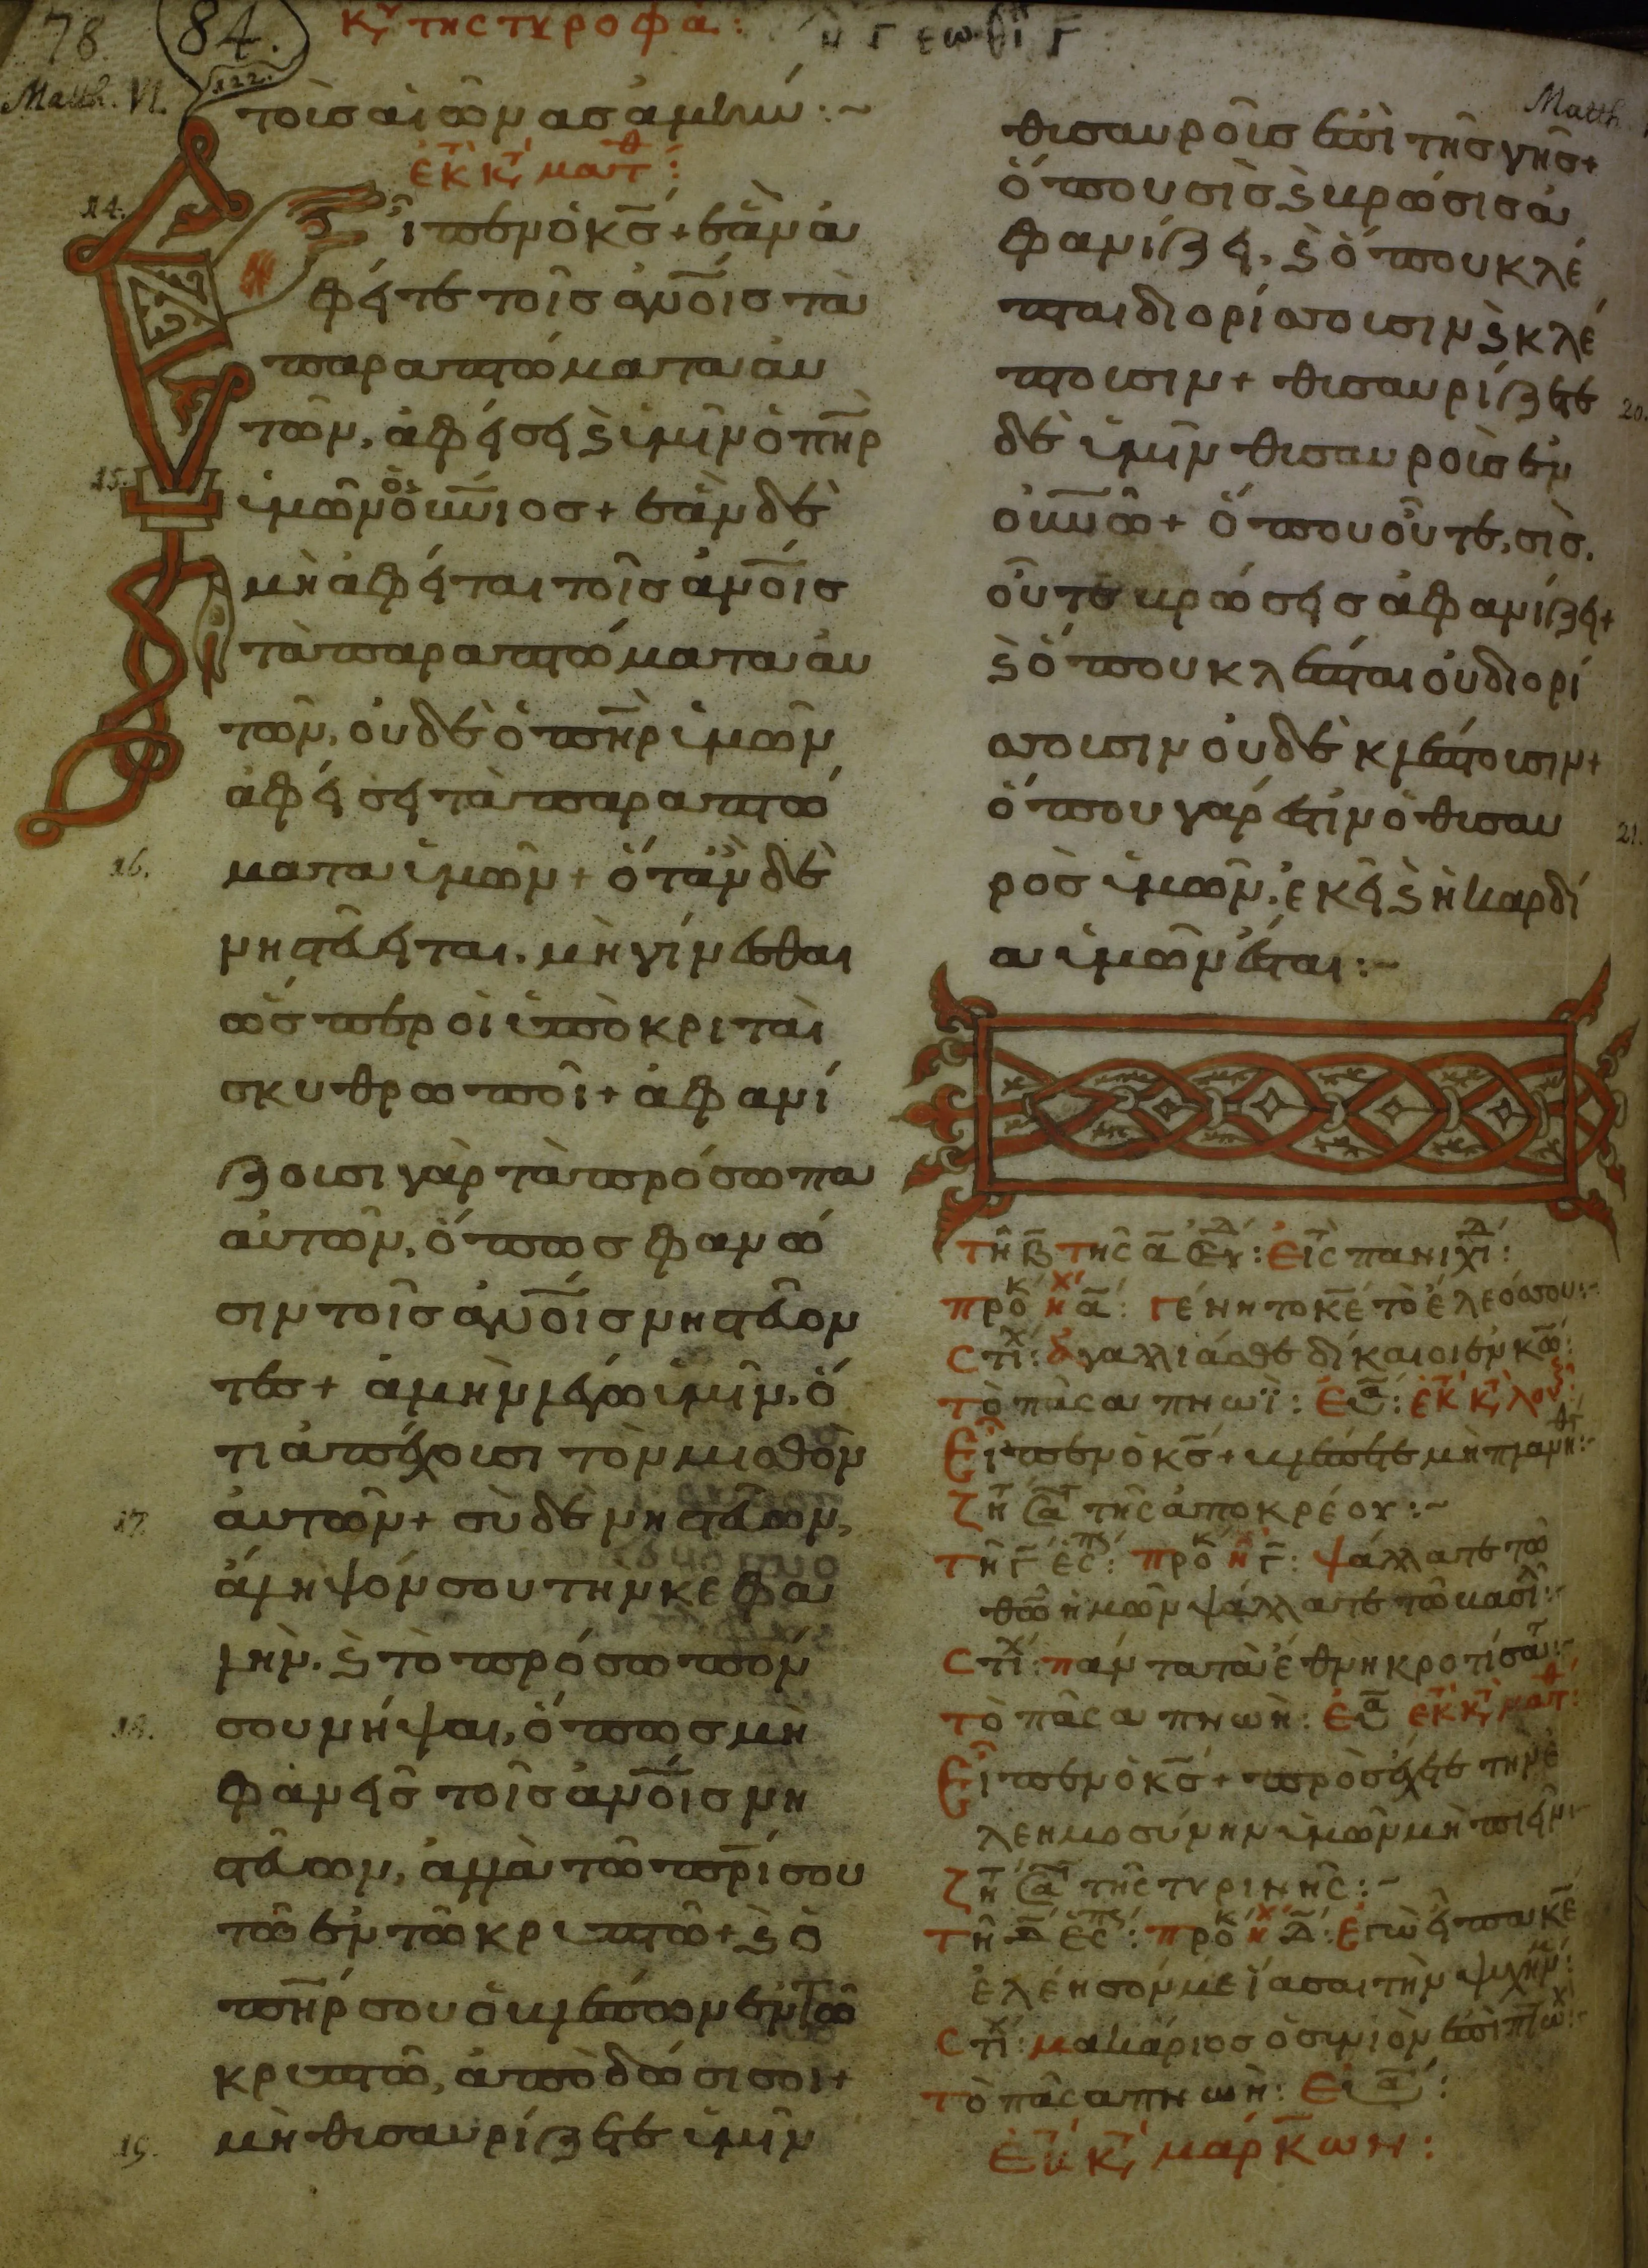 78. 84. κυ της τυροφα: η Γ εωθι Γ
122.
Matth. VI.
τοὶσ αἰῶνασ ἀμίν:~
ἐκ κτ ματθ:
14.
Εἶπεν ὁ κσ + ἐὰν ἀ
φῆτε τοῖσ ἀνοίσ τὰ
παραπτώματα ἀυ
τῶν, ἀφήσῃ ϗ ἱμῖν ὁ πηρ
15.
ἱμῶν ὁ ὀυνιοσ + ἐὰν δὲ
μὴ ἀφῆται τοῖσ ἀνοίσ
τὰ παραπτώματα ἀυ
τῶν, οὐδὲ ὁ πηρ ἱμῶν
ἀφήσῃ τὰ παραπτώ
16.
ματα ἱμῶν + ὅτἂν δὲ
νηστεύηται. μὴ γίνεσθαι
ὥσπερ οἱ ἱποκριταὶ
σκυθρωποὶ + ἀφανί
ζουσι γὰρ τὰ πρόσωπα
αὐτῶν, ὅπωσ φανώ
σιν τοῖσ ἀνοίσ νηστεύον
τεσ + ἀμὴν λέγω ἱμῖν, ὅ
τι ἀπέχουσι τὸν μισθὸν
17.
ἀυτῶν + σὺ δὲ νηστεύων,
ἄληψόν σου τὴν κεφα
λὴν. ϗ τὸ πρόσωπόν
18.
σου νήψαι, ὅπωσ μὴ
φανῇσ τοῖσ ἀνοίσ νη
στεύων, ἀλλὰ τῶ πρί σου
τῶ ἐν τῶ κριπτῶ + ϗ ὁ
πηρ σου ὁ βλέπων ἐν τῶ
κριπτῶ, ἀποδώσι σοι +
19.
μὴ θισαυρίζετε ἱμῖν
Matth.
θισαυροῖσ ἐπὶ τῆσ γῆσ +
ὅπου σὶσ ϗ βρώσισ ἀ
φανίζῃ, ϗ ὅπου κλέ
πται διορίσουσιν ϗ κλέ
20.
πτουσιν + θισαυρίζετε
δὲ ἱμῖν θισαυροὶσ ἐν
οὐνῶ + ὅπου οὔτε, σὶσ.
οὔτε βρώσῃσ ἀφανίζῃ +
ϗ ὅπου κλέπται οὐ διορί
σουσιν οὐδὲ κλέπτουσιν +
21.
ὅπου γάρ ἐστὶν ὁ θισαυ
ρὸσ ἱμῶν, ἐκῇ ϗ ἡ καρδί
α ἱμῶν ἔσται:~
τῆ β της α εβδ: εἰς πανιχι:
προκ ηχ α: γένητο κε τὸ ἔλεόσ σου:~
Cτιχ: ἀγαλλιάσθε δίκαιοι ἐν κω:
τὸ πᾶσα πνωϊ: ἐυα: ἐκ κτ λουκ:
Εἶπεν ὁ κσ + βλέπετε μὴ πλανηθτ:~
ζητ σα τῆς ἀποκρέου:~
τῆ γ ἑσπ: προκ ηχ γ: ψάλλατε τῶ
θῶ ἡμῶν ψάλλατε τῶ βασιλ:~
Cτιχ: πάντα τὰ ἔθνη κροτίσατ:~
τὸ πᾶσα πνωὴ: ἐυα ἐκ κτ ματθ:
Εἶπεν ὁ κσ + προσέχετε τὴν ἐ
λεημοσύνην ἱμῶν μὴ ποιῇν:~
ζητ σα τῆς τυρινῆς:~
τῆ δ ἑσπ: προκ ηχ δ: ἐγὼ εἶπα κε
ἐλέησόν με ἴασαι τὴν ψιχήν μ:
Cτιχ: μακάριοσ ὁ σινιὸν ἐπὶ πτωχ:~
τὸ πᾶσα πνωὴ: ἐυα:
ἐκ κτ μάρκων: